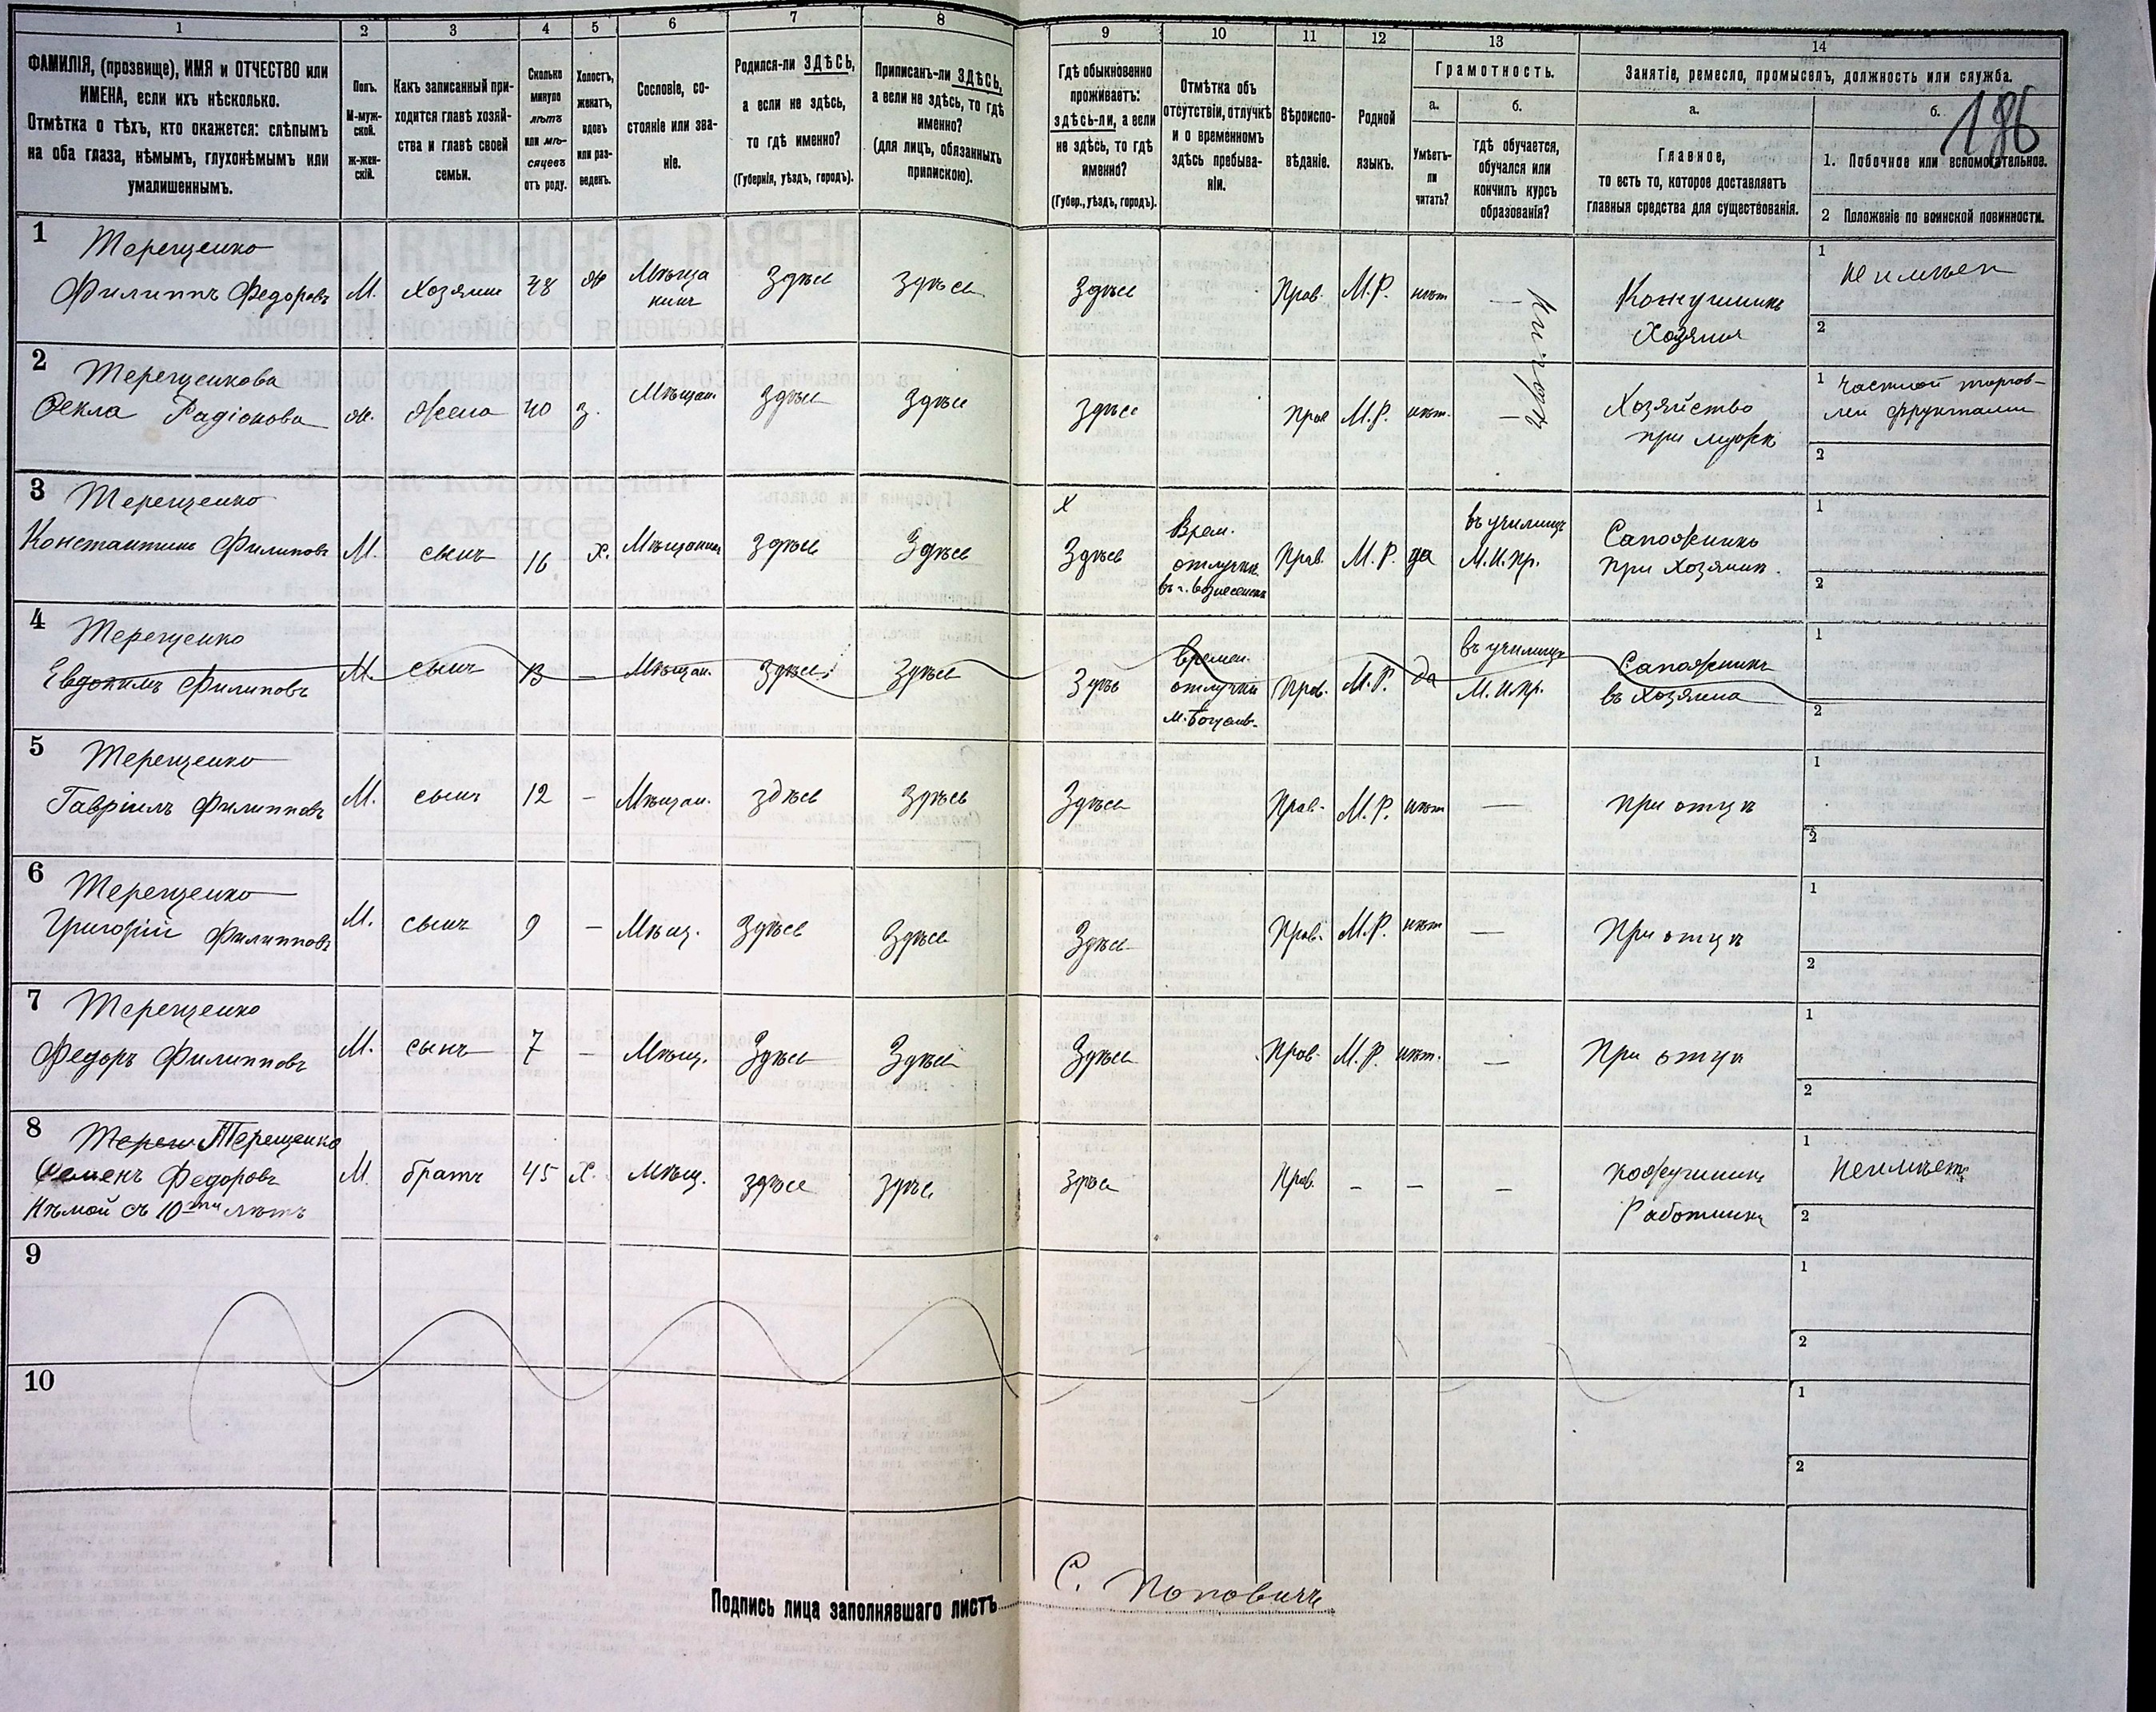 1 2 3 4 5 6 7 8 9 10 11 12 13 14
ФАМИЛІЯ, (прозвище), ИМЯ и ОТЧЕСТВО или
ИМЕНА, если ихъ нѣсколько.
Отмѣтка о тѣхъ, кто окажется: слѣпымъ
на оба глаза, нѣмымъ, глухонѣмымъ или
умалишеннымъ.
Полъ.
М-муж-
ской.
ж-жен-
скій.
Какъ записанный при-
ходится главѣ хозяй-
ства и главѣ своей
семьи.
Сколько
минуло
лѣтъ
или мѣ-
сяцевъ
отъ роду.
Холостъ,
женатъ,
вдовъ
или раз-
веденъ.
Сословіе, со-
стояніе или зва-
ніе.
Родился-ли ЗДѢСЬ,
а если не здѣсь,
то гдѣ именно?
(Губернія, уѣздъ, городъ).
Приписанъ-ли ЗДѢСЬ,
а если не здѣсь, то гдѣ
именно?
(для лицъ, обязанныхъ
припискою).
Гдѣ обыкновенно
проживаетъ:
здѣсь-ли, а если
не здѣсь, то гдѣ
именно?
(Губер., уѣздъ, городъ).
Отмѣтка объ
отсутствіи, отлучкѣ
и о временномъ
здѣсь пребыва-
ніи.
Вѣроиспо-
вѣданіе.
Родной
языкъ.
Грамотность.
а.
Умѣетъ-
ли
читать?
б.
гдѣ обучается,
обучался или
кончилъ курсъ
образованія?
Занятіе, ремесло, промыселъ, должность или служба.
а.
Главное,
то есть то, которое доставляетъ
главныя средства для существованія.
б.
186
1. Побочное или вспомогательное.
2 Положеніе по воинской повинности.
1 Терещенко
Филиппъ Федоровъ М. Хозяинъ 48 ж Мѣща
нинъ Здѣсь Здѣсь Здѣсь Прав. М.Р. нѣтъ — Кожушникъ
Хозяинъ 1 Неимѣетъ
2
2 Терещенкова
Фекла Радіонова ж. жена 40 з. Мѣщан. Здѣсь Здѣсь Здѣсь Прав М.Р. нѣт. — Хозяйство
при мужѣ 1 Частной торгов-
лей фруктами
2
3 Терещенко
Константинъ Филиповъ М. сынъ 16 х. Мѣщанинъ Здѣсь Здѣсь х
Здѣсь Врем.
отлучкѣ
въ г. Вознесенскѣ Прав. М.Р. да въ училищѣ
М.Н.Пр. Сапожникъ
при Хозяинѣ. 1
2
4 Терещенко
Евдокимъ Филиповъ М. сынъ 13 — Мѣщан. Здѣсь Здѣсь Здѣсь Времен.
отлучки
Прав. М.Р. да въ училищѣ
М.Н.Пр. Сапожникъ
въ Хозяина 1
2
5 Терещенко
Гавріилъ Филипповъ М. сынъ 12 — Мѣщан. здѣсь Здѣсь Здѣсь Прав. М.Р. нѣтъ — при отцѣ 1
2
6 Терещенко
Григорій Филипповъ М. сынъ 9 — Мѣщ. Здѣсь Здѣсь Здѣсь Прав. М.Р. нѣтъ — При отцѣ 1
2
7 Терещенко
Федоръ Филипповъ М. сынъ 7 — Мѣщ. Здѣсь Здѣсь Здѣсь Прав. М.Р. нѣт. — При отцѣ 1
2
8 Терещ. Терещенко
Семенъ Федоровъ М. братъ 45 Х. Мѣщ. здѣсь здѣсь здѣсь Прав. — — — Кожушникъ 1 Неимѣетъ
Нѣмой съ 10ти лѣтъ Работникъ 2
9 1
2
10 1
2
Подпись лица заполнявшаго листъ С. Поповичъ